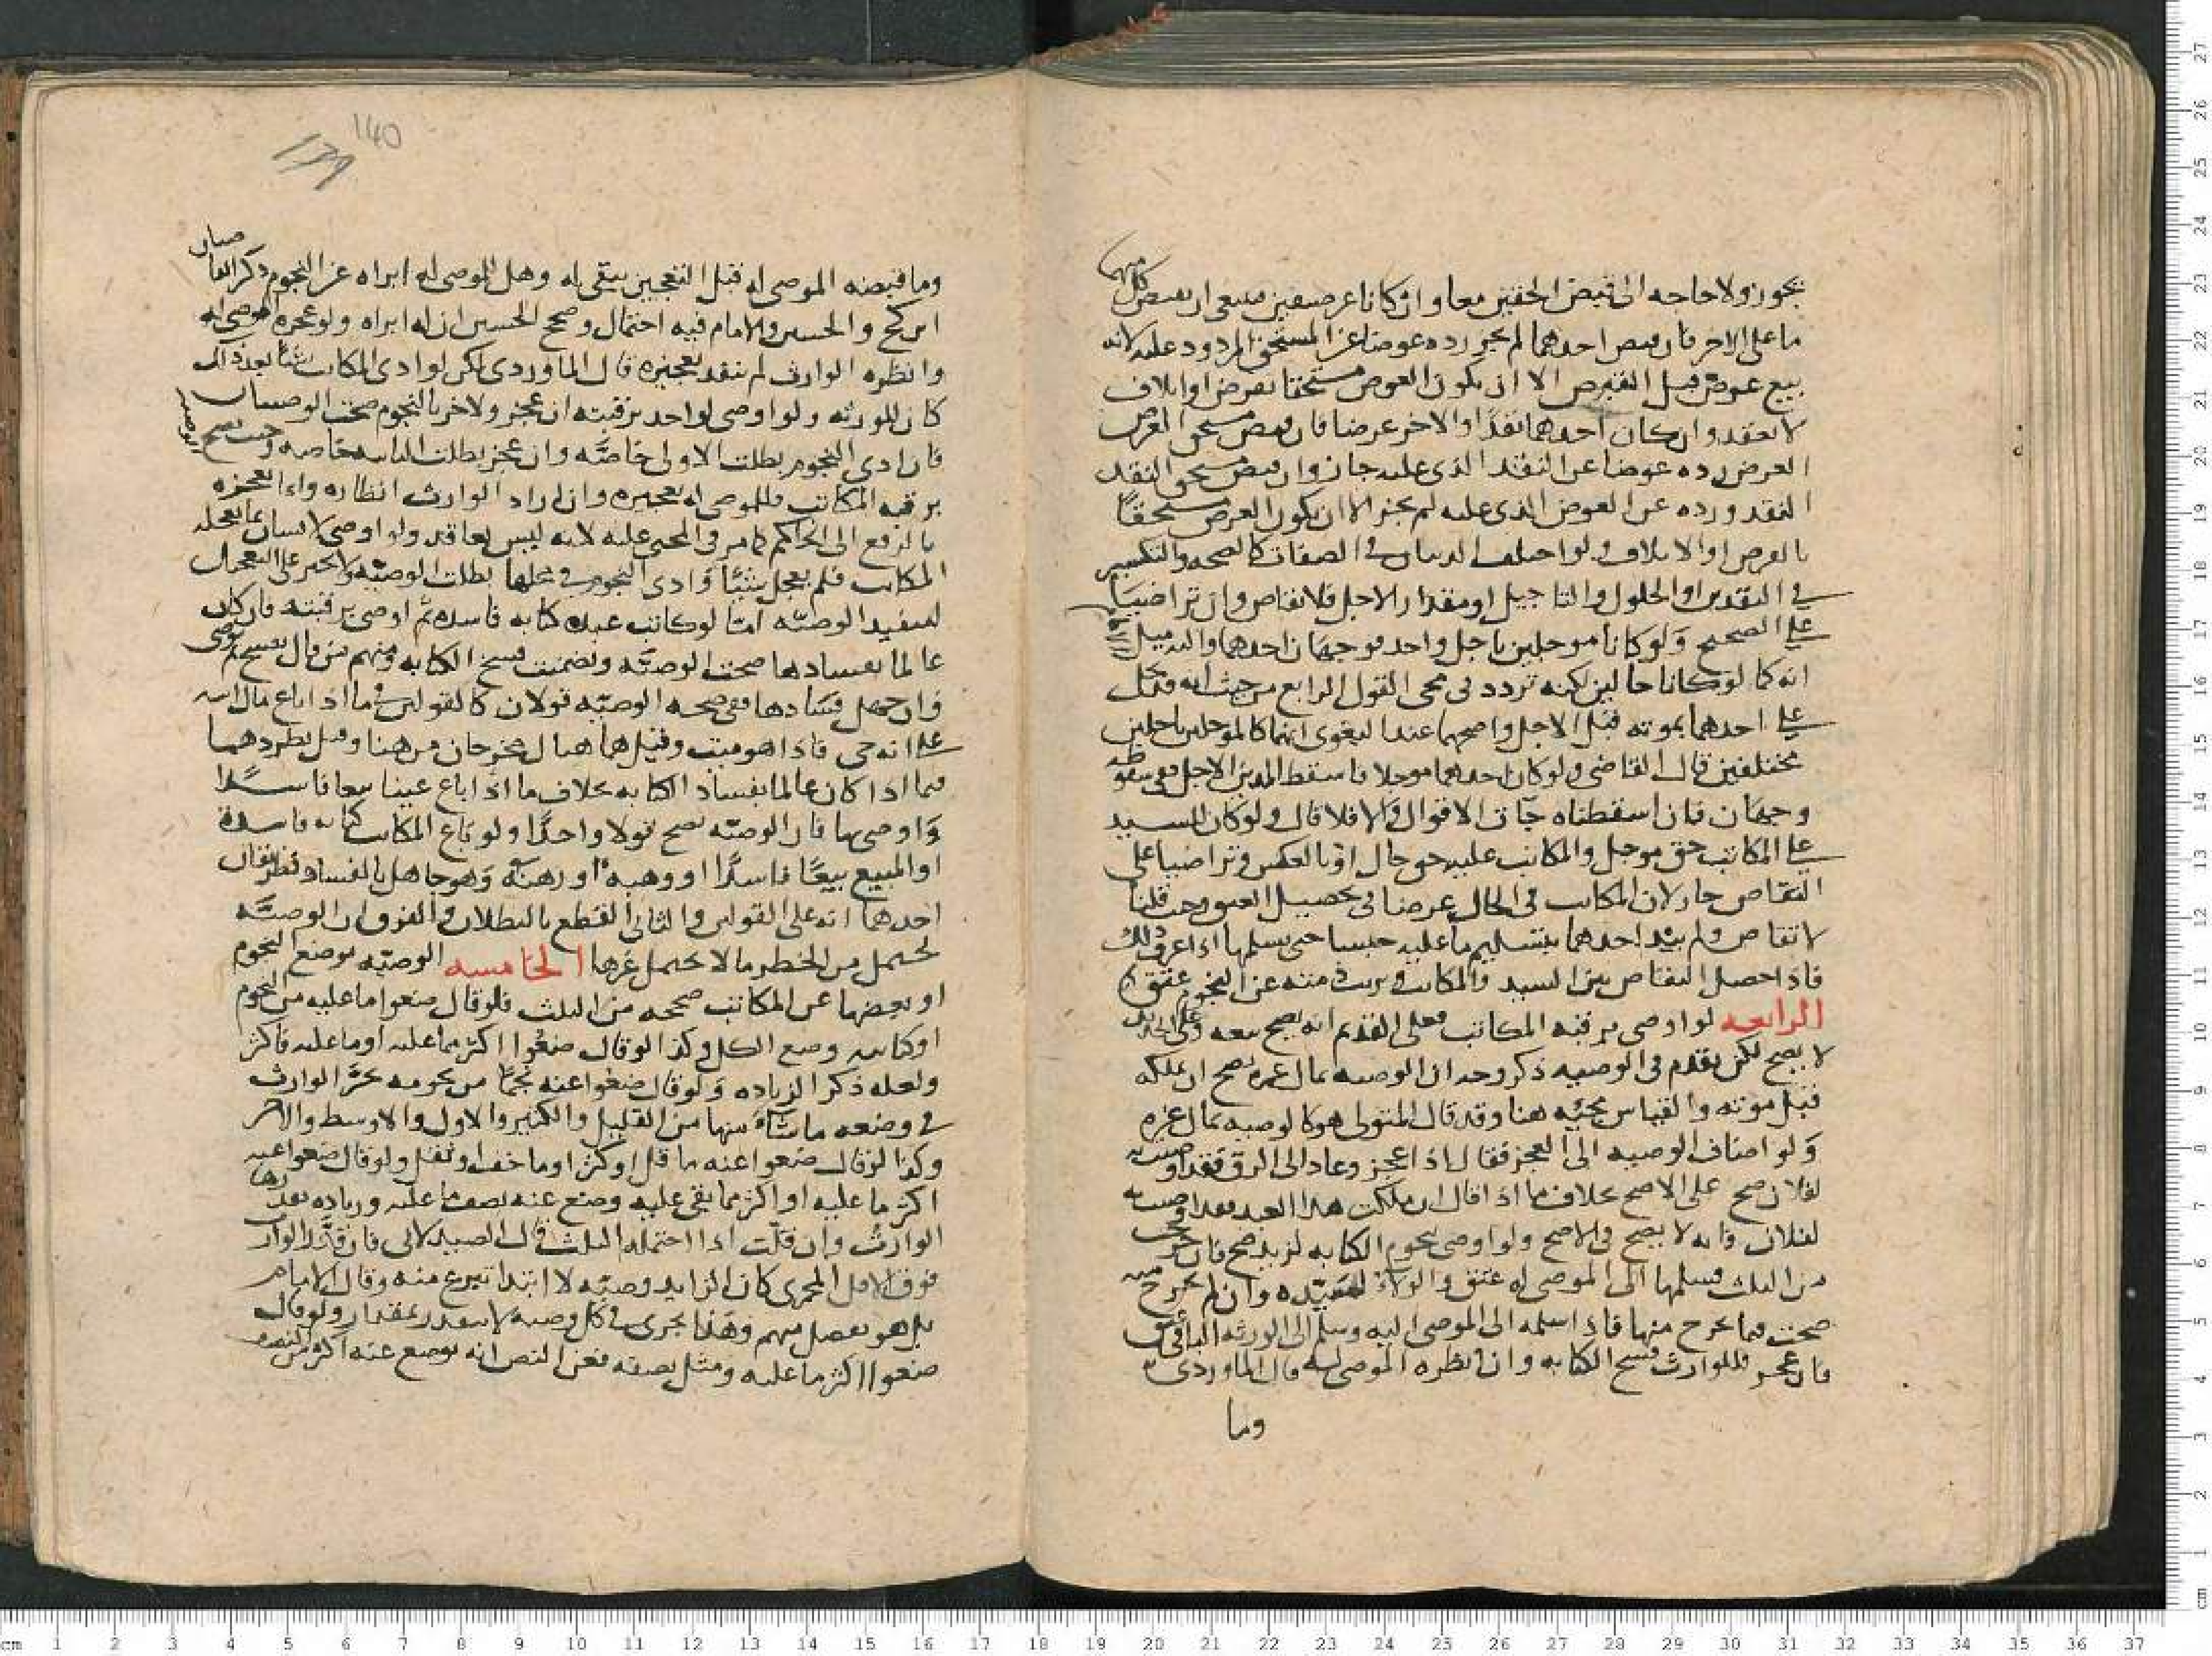 يجوز ولا حاجه الى قبض الحقين معا وان كانا عرضيين فينبغى ان يقبض كل منهما
ما على الاخر فان قبض احدهما لم يجز رده عوضا عن المستحق المردود عليه لانه
بيع عرض قبل القبض الا ان يكون العرض مستحقا بقرض او اتلاف
لا بعقد وان كان احدهما نقدا والاخر عرضا فان قبض مستحق العرض
العرض ورده عوضا عن النقد الذى عليه جاز وان قبض مستحق النقد
النقد ورده عن العرض الذى عليه لم يجز الا ان يكون العرض مستحقا
بالقرض او الاتلاف ولو اختلف الدينان فى الصفات كالصحه والتكسير
فى النقدين او الحلول والتاجيل او مقدار الاجل فلا تقاص وان تراضيا
على الصحيح ولو كانا موجلين باجل واحد فوجهان احدهما واليه ميل
انه كما لو كانا حالين لكنه تردد فى مجى القول الرابع من حيث انه قد يحل
على احدهما بموته قبل الاجل واصحهما عند البغوى انهما كالموجلين باجلين
مختلفين قال القاضى ولو كان احدهما موجلا فاسقط المدين الاجل ففى سقوطه
وجهان فان اسقطناه جات الاقوال والا فلا قال ولو كان للسيد
على المكاتب حق موجل والمكاتب عليه حق حال او بالعكس وتراضيا على
التقاص جاز لان للمكاتب فى الحال عرضا فى تحصيل العتق وحيث قلنا
لا تقاص ولم يبد احدهما بتسليم ما عليه حبسا حتى يسلمها اذا عرف ذلك
فاذا حصل التقاص بين السيد والمكاتب وبريت ذمته عن النجوم عتق
الرابعه لو اوصى برقبه المكاتب فعلى القديم انه يصح بيعه وعلى الجديد
لا يصح لكن تقدم فى الوصيه ذكر وجه ان الوصيه بمال غيره تصح ان ملكه
قبل موته والقياس مجيئه هنا وقد قال المتولى هو كالوصيه بمال غيره
ولو اضاف الوصيه الى العجز فقال اذا عجز وعاد الى الرق فقد اوصيت به
لفلان صح على الاصح بخلاف ما اذا قال ان ملكت هذا العبد فقد اوصيت به
لفلان فانه لا يصح فى الاصح ولو اوصى بنجوم الكتابه لزيد صح فان خرجت
من الثلث فسلمها الى الموصى له عتق والولاء لسيده وان لم تخرج منه
صحت فيما يخرج منها فاذا سلمه الى الموصى اليه وسلم الى الورثه الباقى عتق
فان عجز فللوارث فسخ الكتابه وان انظره الموصى له قال الماوردى
وما
140
139
وما قبضه الموصى له قبل التعجيز يبقى له وهل للموصى له ابراه عن النجوم ذكر القاضيان
ابن كج والحسين والامام فيه احتمال وصحح الحسين ان له ابراه ولو عجزه الموصى له
وانظره الوارث لم ينفد تعجيزه قال الماوردى لكن لو ادى المكاتب شيا بعد ذلك
كان للورثه ولو اوصى لواحد برقبته ان عجز ولاخر بالنجوم صحت الوصيتان
فان ادى النجوم بطلت الاولى خاصه وان عجز بطلت الثانيه خاصه وحيث تصح الوصيه
برقبه المكاتب فللموصى له تعجيزه وان اراد الوارث انظاره وانما يعجزه
بالرفع الى الحاكم كما مر فى المجنى عليه لانه ليس بعاقد ولو اوصى لانسان بما يعجله
المكاتب فلم يعجل شيئا وادى النجوم فى محلها بطلت الوصيه ولا يجبر على التعجيل
لتنفيذ الوصيه اما لو كاتب عبده كتابه فاسده ثم اوصى برقبته فان كان
عالما بفسادها صحت الوصيه وتضمنت فسخ الكتابه ومنهم من قال يفسخ ثم يوصى
وان جهل فسادها ففى صحه الوصيه قولان كالقولين فى ما اذا باع مال ابيه
على انه حى فاذا هو ميت وقيل هما هنا لا يخرجان من هنا وقيل بطردهما
فيما اذا كان عالما بفساد الكتابه بخلاف ما اذا باع عينا بيعا فاسدا
واوصى بها فان الوصيه تصح قولا واحدا ولو باع المكاتب كتابه فاسدة
او المبيع بيعا فاسدا او وهبه او رهنه وهو جاهل بالفساد فطريقان
احدهما انه على القولين والثانى القطع بالبطلان والفرق ان الوصيه
تحتمل من الخطر ما لا يحتمل غيرها الخامسه الوصيه بوضع النجوم
او بعضها عن المكاتب صحيحه من الثلث فلو قال ضعوا ما عليه من النجوم
او كتابته وضع الكل وكذا لو قال ضعوا اكثر مما عليه او ما عليه فاكثر
ولعله ذكر الزياده ولو قال ضعوا عنه نجما من نجومه تخير الوارث
فى وضعه ما شاء منها من القليل والكثير والاول والاوسط والاخر
وكذا لو قال ضعوا عنه ما قل او كثر او ما خف او ثقل ولو قال ضعوا عنه
اكثر ما عليه او اكثر مما بقى عليه وضع عنه نصف ما عليه وزياده يقدرها
الوارث وان قلت اذا احتمله الثلث قال الصيدلانى فان قدر الوارث
فوق الاقل المجزى كان الزايد وصيه لا ابتدا تبرع منه وقال الامام
بل هو تفضل منهم وهذا يجرى فى كل وصيه لا تتقدر بمقدار ولو قال
ضعوا اكثر ما عليه ومثل نصفه فعن النص انه يوضع عنه اكثر من النصف